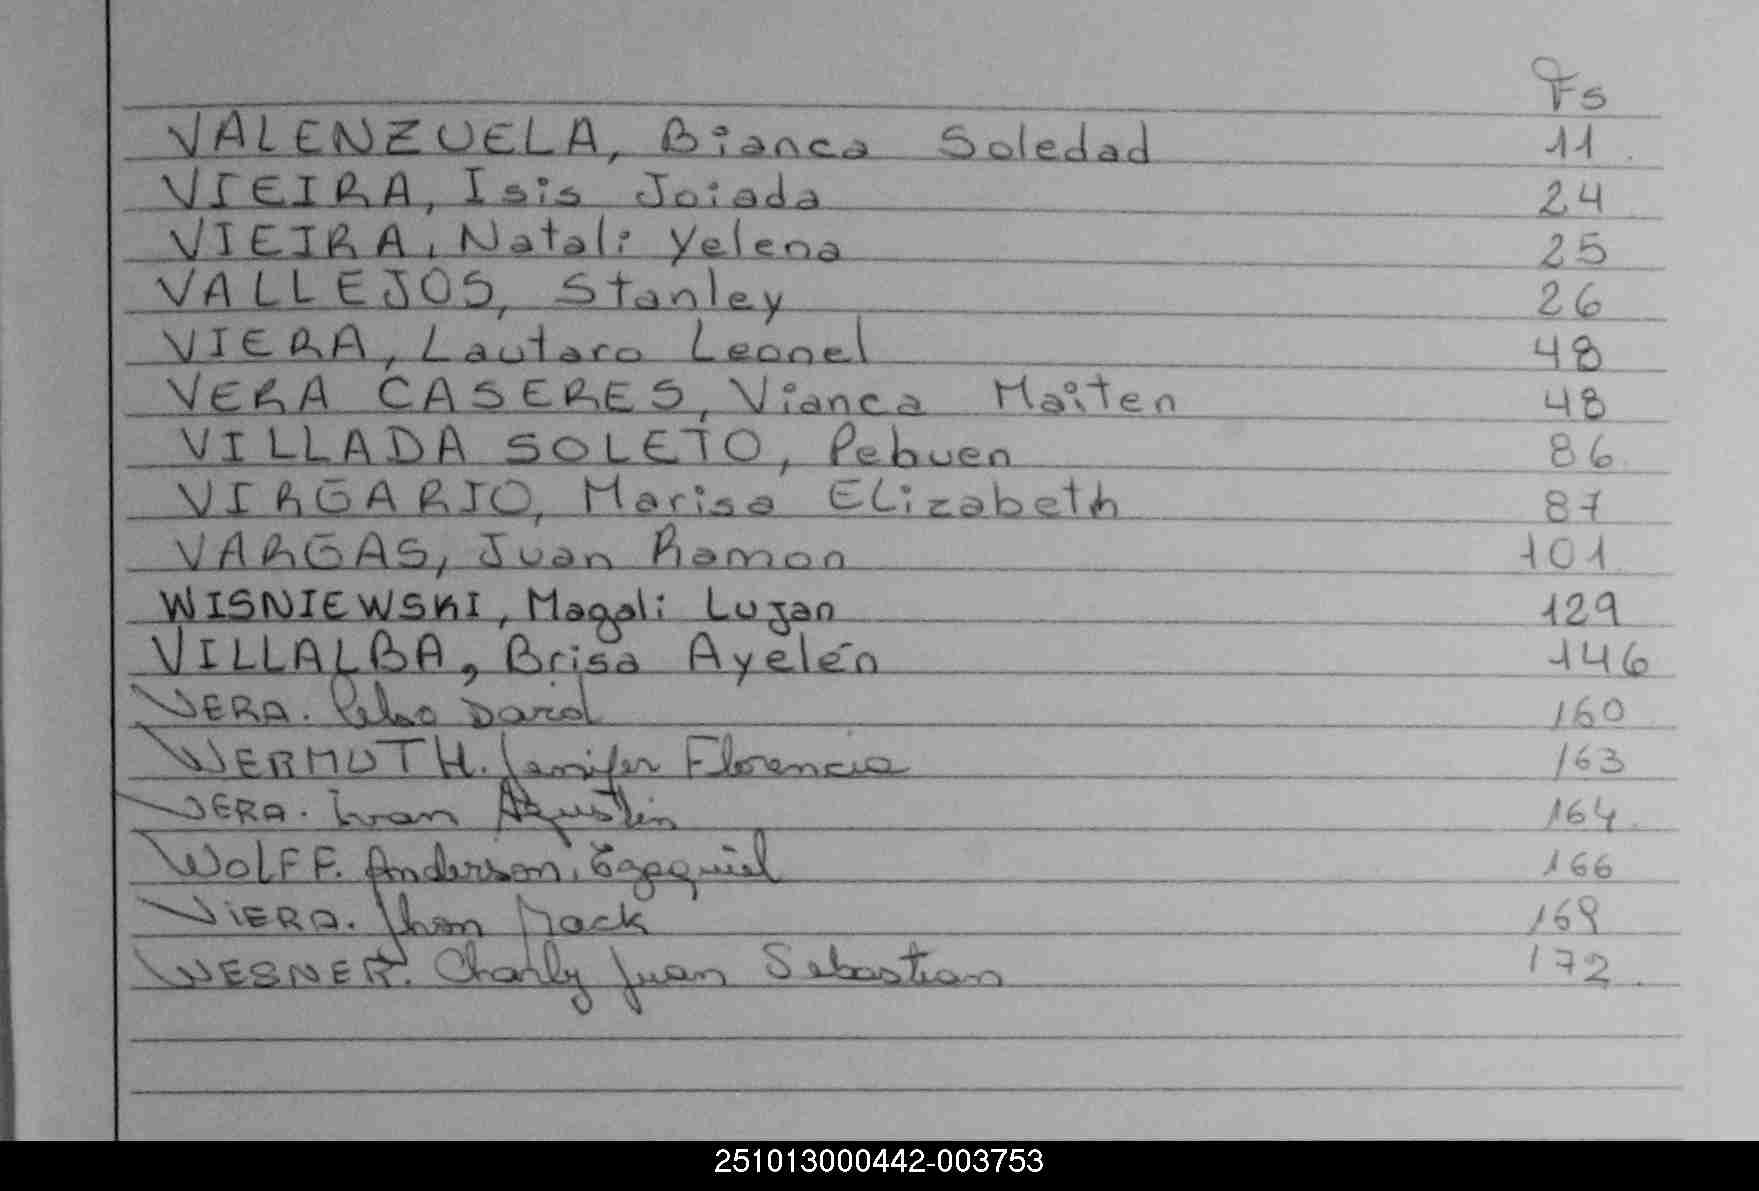 Fs
VALENZUELA, Bianca Soledad 11
VIEIRA, Isis Joiada 24
VIEIRA, Natali Yelena 25
VALLEJOS, Stanley 26
VIERA, Lautaro Leonel 48
VERA CASERES, Vianca Maiten 48
VILLADA SOLETO, Pehuen 86
VIRGARIO, Marisa ELizabeth 87
VARGAS, Juan Ramon 101
WISNIEWSKI, Magali Lujan 129
VILLALBA, Brisa Ayelén 146
VERA. Celso David 160
WERMUTH. Jenifer Florencia 163
VERA. Ivan Agustin 164
WOLFF. Anderson, Ezequiel 166
VIERA. Jhon Mack 169
WESNER. Charly Juan Sebastian 172
251013000442-003753